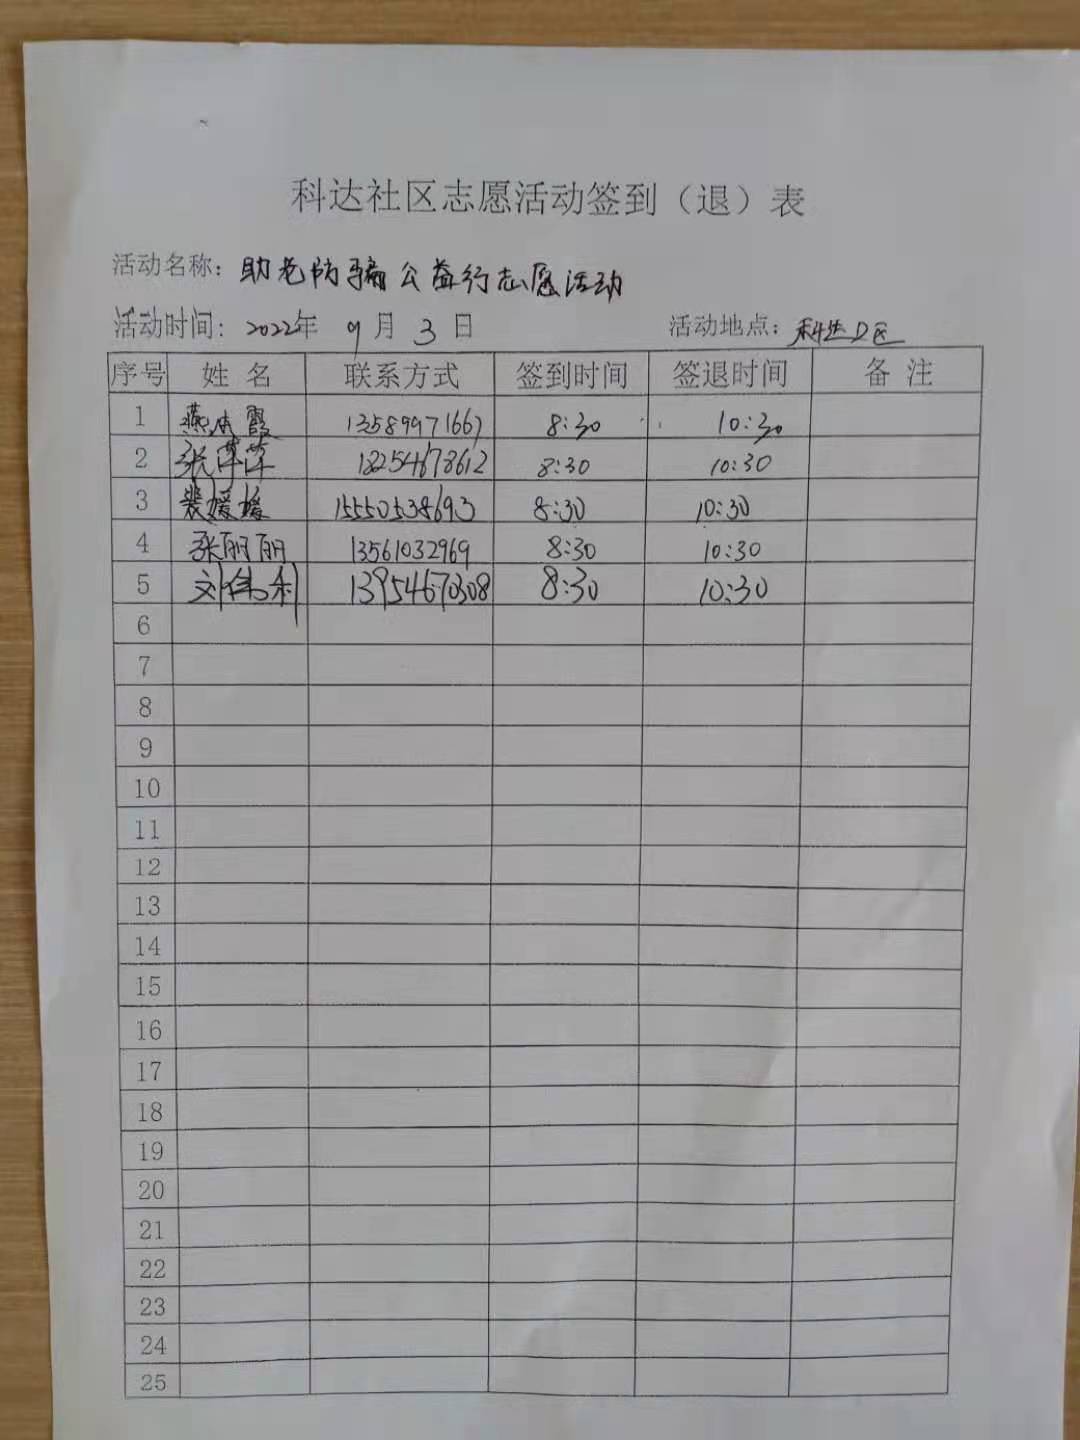 科达社区志愿活动签到（退）表
活动名称：助老防骗公益行志愿活动
活动时间：2022年 9月 3日 活动地点：科达D区
序号 姓名 联系方式 签到时间 签退时间 备注
1 燕霞 13589971667 8:30 10:30
2 张萍萍 18254678612 8:30 10:30
3 裴媛媛 15550538693 8:30 10:30
4 张丽丽 13561032969 8:30 10:30
5 刘伟利 13954670308 8:30 10:30
6
7
8
9
10
11
12
13
14
15
16
17
18
19
20
21
22
23
24
25